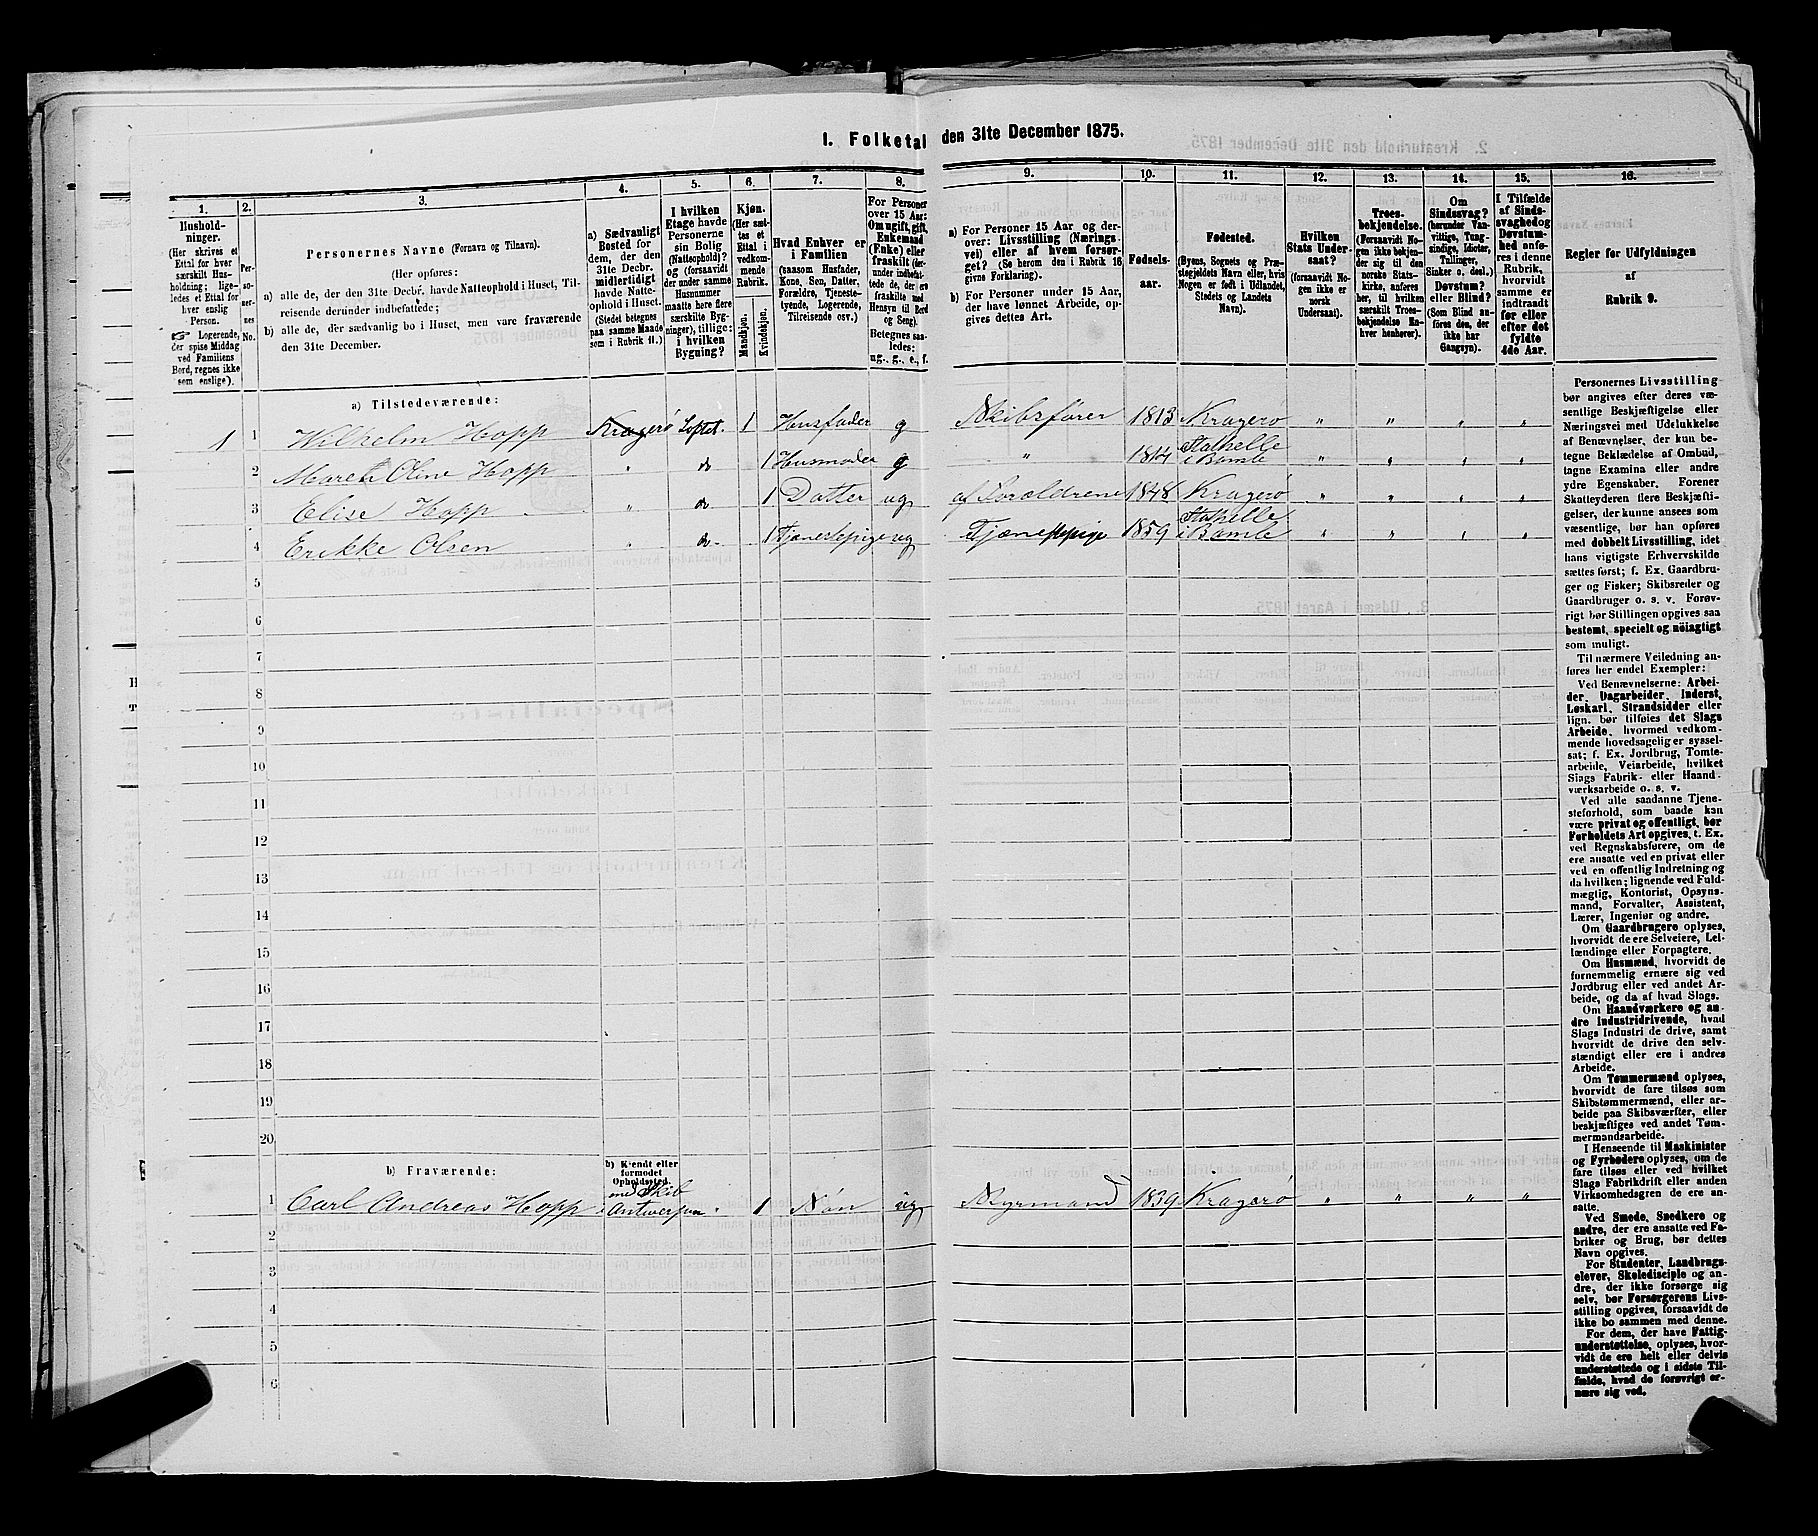 1. Folketal den 31te December 1875.
1.
2.
3.
4.
5.
6.
7.
8.
9.
10.
11.
12.
13.
14.
15.
16.
Husholdninger.
(Her skrives et
Ettal for hver
særskilt Husholdning; ligeledes et Ettal for
hver enslig
Person.
☞ Logerende,
der spise Middag
ved Familiens
Bord, regnes ikke
som enslige).
Personernes
No.
Personernes Navne (Fornavn og Tilnavn).
(Her opføres:
a) alle de, der den 31te Decbr. havde Natteophold i Huset, Tilreisende derunder indbefattede;
b) alle de, der sædvanlig bo i Huset, men vare fraværende
den 31te December.
a) Sædvanligt
Bosted for
dem, der den
31te Decbr.
midlertidigt
havde Natteophold i Huset.
(Stedet betegnes
paa samme Maade
som i Rubrik 11.)
I hvilken
Etage havde
Personerne
sin Bolig
(Natteophold)?
og (forsaavidt
der under samme
Husnummer
maatte høre flere
særskilte Bygninger), tillige:
i hvilken
Bygning?
Kjøn.
(Her sættes et
Ettal i
vedkommende
Rubrik.
Mandkjøn.
Kvindekjøn.
Hvad Enhver er
i Familien
(saasom Husfader,
Kone, Søn, Datter,
Forældre, Tjenestetyende, Logerende,
Tilreisende osv.)
For Personer
over 15 Aar:
Om ugift, gift,
Enkemand
(Enke) eller
fraskilt (derunder indbefattede de, der ere
fraskilte med
Hensyn til Bord
og Seng).
Betegnes saaledes:
ug., g., e., f.
a) For Personer 15 Aar og derover: Livsstilling (Næringsvei) eller af hvem forsørget? (Se herom den i Rubrik 16
givne Forklaring).
b) For Personer under 15 Aar,
der have lønnet Arbeide, opgives dettes Art.
Fødselsaar.
Fødested.
(Byens, Sognets og Præstegjeldets Navn eller, hvis
Nogen er født i Udlandet,
Stedets og Landets
Navn).
Hvilken
Stats Undersaat?
(forsaavidt Nogen ikke er
norsk
Undersaat).
Troesbekjendelse.
(Forsaavidt Nogen ikke bekjender sig til den
norske Statskirke, anføres
her, til hvilken
særskilt Troesbekjendelse Enhver henhører).
Om
Sindssvag?
(herunder Vanvittige, Tungsindige, Idioter,
Tullinger,
Sinker o. desl.)
Døvstum?
eller Blind?
(Som Blind anføres den, der
ikke har
Gangsyn).
I Tilfælde
af Sindssvaghed og
Døvstumhed anføres i denne
Rubrik,
hvorvidt
samme er
indtraadt
før eller
efter det
fyldte
4de Aar.
Regler for Udfyldningen
af
Rubrik 9.
a) Tilstedeværende:
1 1 Wilhelm Hopp Kragerø Loftet. 1 Husfader g Skibsfører 1813 Kragerø " " " "
2 Maren Oline Hopp " do 1 Husmoder g " 1814 Stathelle i Bamle " " " "
3 Elise Hopp " do 1 Datter ug af Forældrene 1848 Kragerø " " " "
4 Erikke Olsen " do 1 Tjenestepige ug Tjenestepige 1859 Stathelle i Bamle " " " "
5
6
7
8
9
10
11
12
13
14
15
16
17
18
19
20
b) Fraværende:
b) Kjendt eller
formodet
Opholdssted.
1 Carl Andreas Hopp med Skib Antwerpen 1 Søn ug Styrmand 1839 Kragerø " " " "
2
3
4
5
6
Personernes Livsstilling
bør angives efter deres væsentlige Beskjæftigelse eller
Næringsvei med Udelukkelse
af Benævnelser, der kun betegne Beklædelse af Ombud,
tagne Examina eller andre
ydre Egenskaber. Forener
Skatteyderen flere Beskjæftigelser, der kunne ansees som
væsentlige, bør han opføres
med dobbelt Livsstilling, idet
hans vigtigste Erhvervskilde
sættes først; f. Ex. Gaardbruger og Fisker; Skibsreder og
Gaardbruger o. s. v. Forøvrigt bør Stillingen opgives saa
bestemt, specielt og nöiagtigt
som muligt.
Til nærmere Veiledning anføres her endel Exempler:
Ved Benævnelserne: Arbeider, Dagarbeider, Inderst,
Løskarl, Strandsidder eller
lign. bør tilføies det Slags
Arbeide, hvormed vedkommende hovedsagelig er sysselsat; f. Ex. Jordbrug, Tomtearbeide, Veiarbeide, hvilket
Slags Fabrik- eller Haandværksarbeide o. s. v.
Ved alle saadanne Tjenesteforhold, som baade kan
være privat og offentligt, bør
Forholdets Art opgives, t. Ex.
ved Regnskabsførere, om de
ere ansatte ved en privat eller
ved en offentlig Indretning og
da hvilken; lignende ved Fuldmægtig, Kontorist, Opsynsmand, Forvalter, Assistent,
Lærer, Ingeniør og andre.
Om Gaardbrugere oplyses,
hvorvidt de ere Selveiere, Leilændinge eller Forpagtere.
Om Husmænd, hvorvidt de
fornemmelig ernære sig ved
Jordbrug eller ved andet Arbeide, og da af hvad Slags.
Om Haandværkere og andre Industridrivende, hvad
Slags Industri de drive, samt
hvorvidt de drive den selvstændigt eller ere i andres
Arbeide.
Om Tømmermænd oplyses,
hvorvidt de fare tilsøs som
Skibstømmermænd, eller arbeide paa Skibsværfter, eller
beskjæftiges ved andet Tømmermandsarbeide.
I Henseende til Maskinister
og Fyrbødere oplyses, om de
fare tilsøs eller ved hvilket
Slags Fabrikdrift eller anden
Virksomhedsgren de ere ansatte.
Ved Smede, Snedkere og
andre, der ere ansatte ved Fabriker og Brug, bør dettes
Navn opgives.
For Studenter, Landbrugselever, Skoledisciple og andre, der ikke forsørge sig
selv, bør Forsørgerens Livsstilling opgives, forsaavidt de
ikke bo sammen med denne.
For dem, der have Fattigunderstøttelse, oplyses, hvorvidt de ere helt eller delvis
understøttede og i sidste Tilfælde, hvad de forøvrigt ernære sig ved.